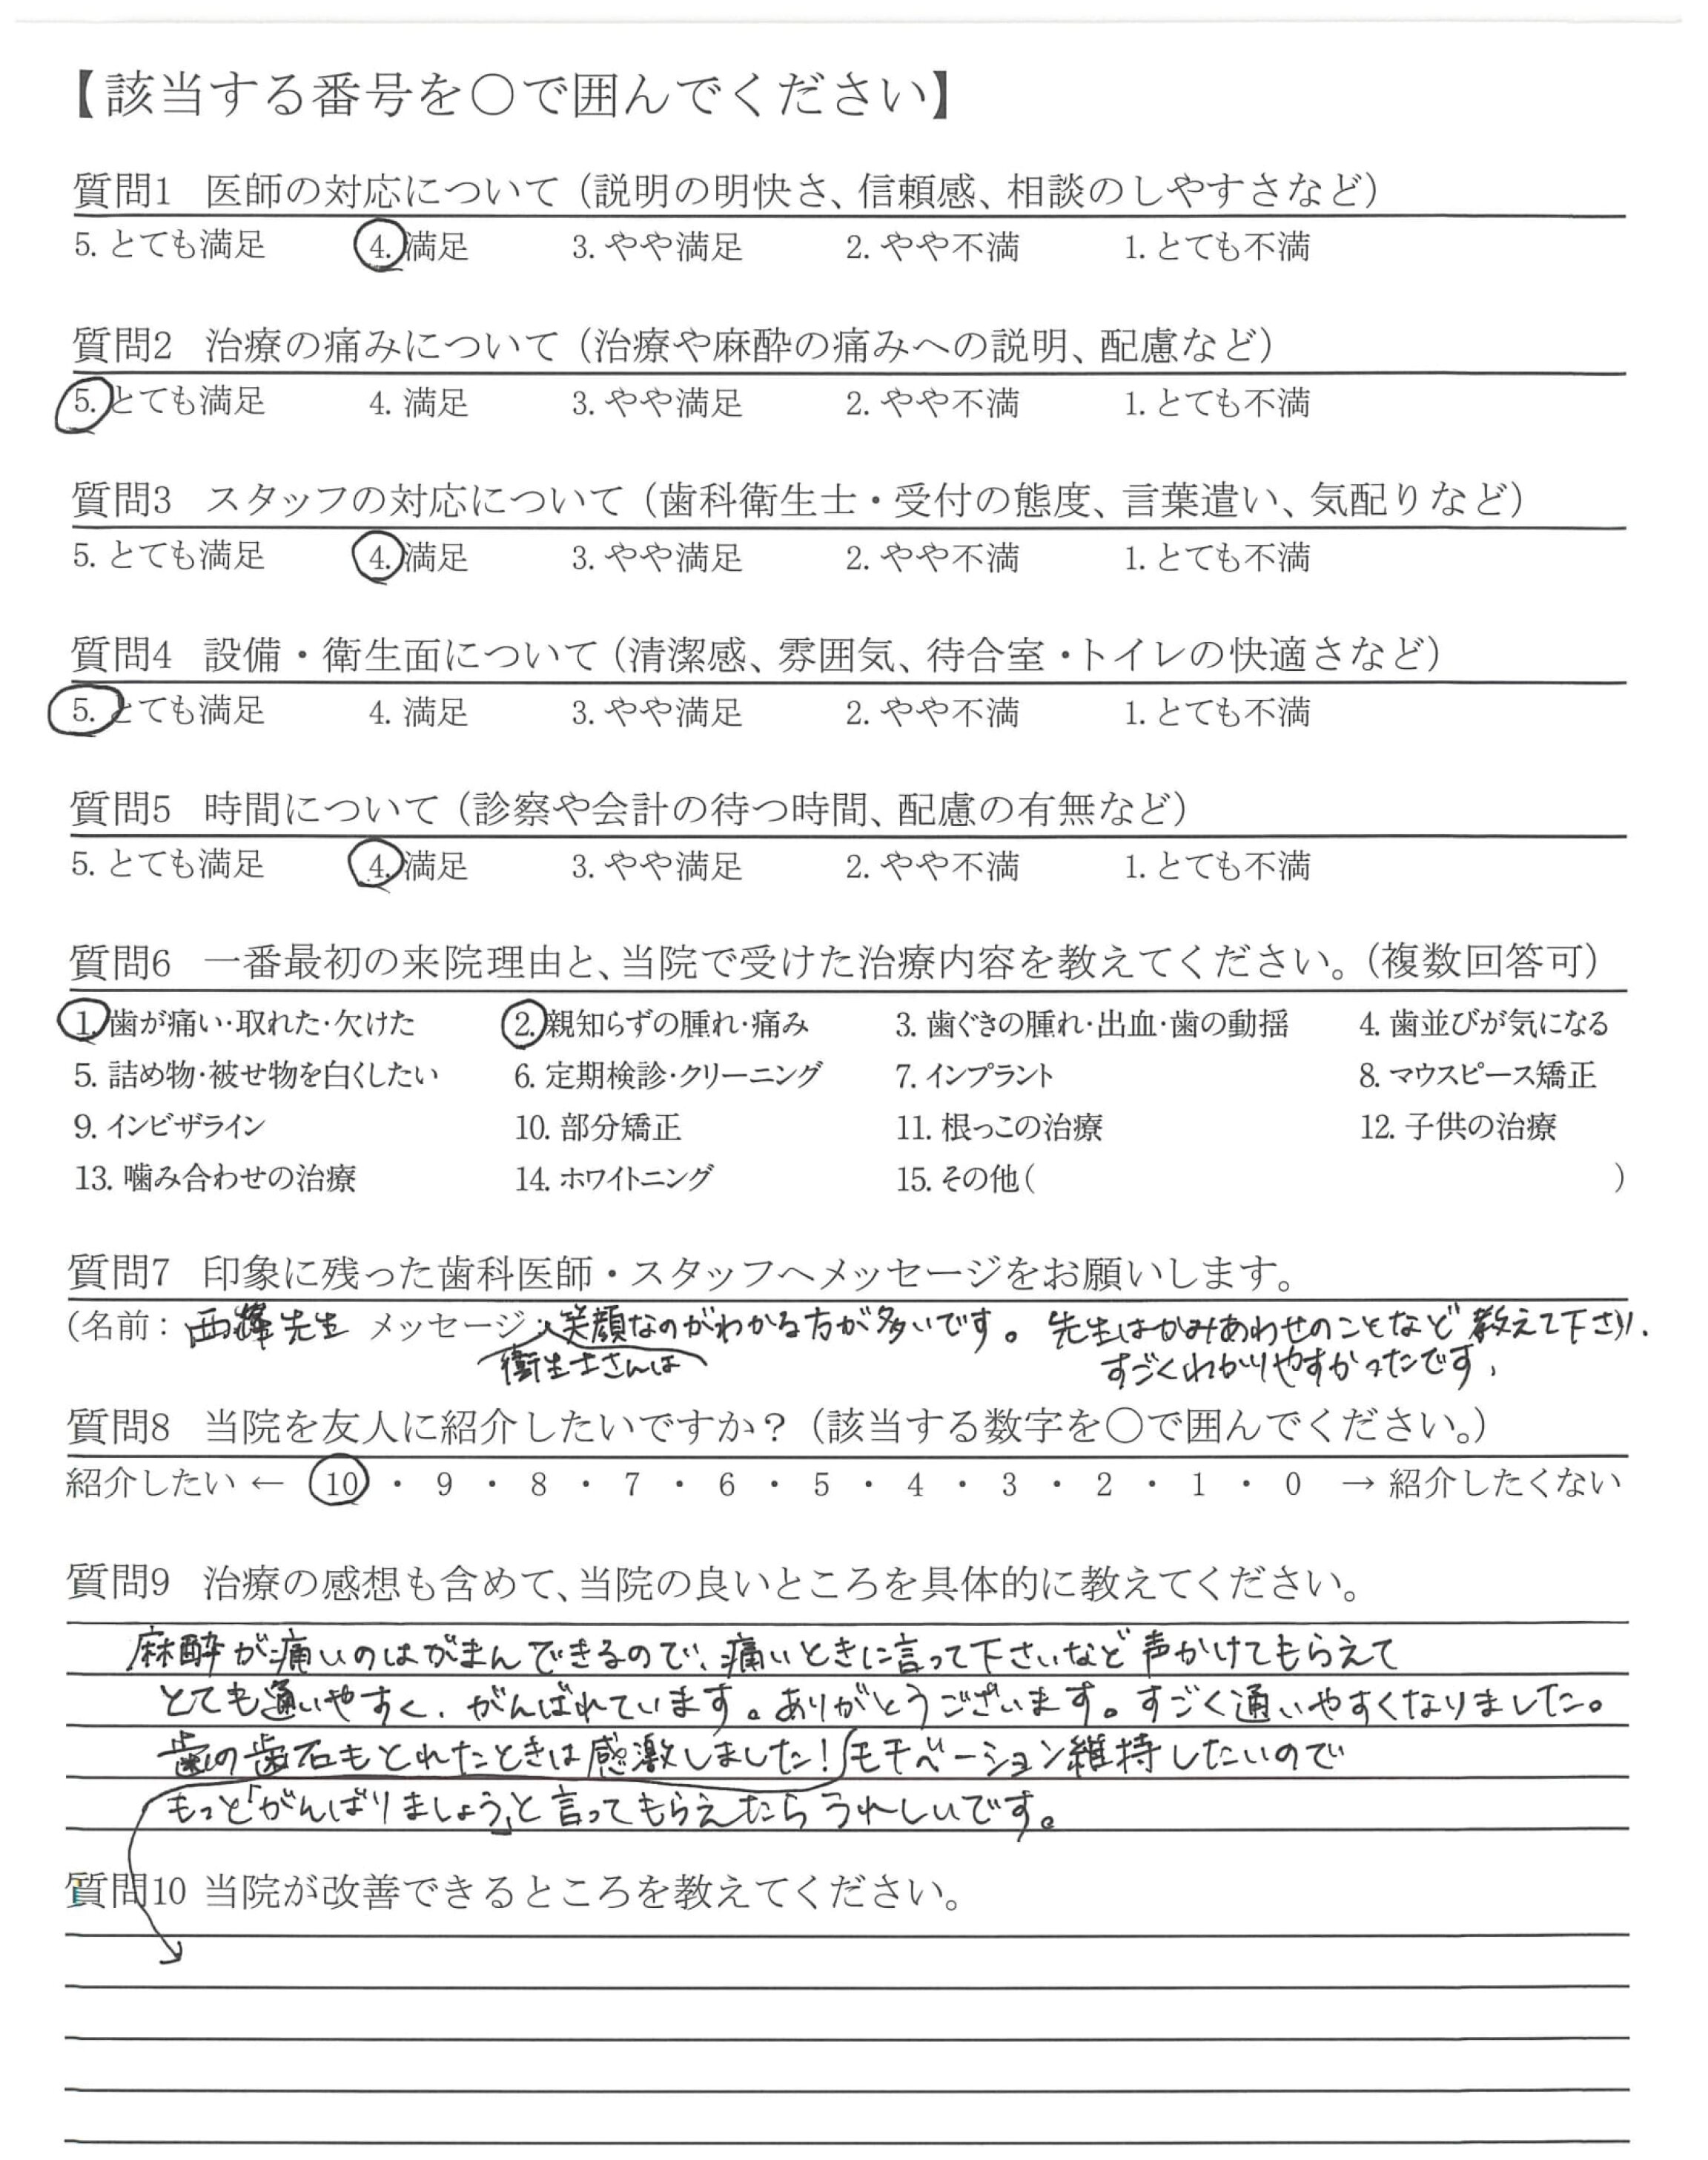 【該当する番号を○で囲んでください】
質問1 医師の対応について（説明の明快さ、信頼感、相談のしやすさなど）
5. とても満足 4. 満足 3. やや満足 2. やや不満 1. とても不満
質問2 治療の痛みについて（治療や麻酔の痛みへの説明、配慮など）
5. とても満足 4. 満足 3. やや満足 2. やや不満 1. とても不満
質問3 スタッフの対応について（歯科衛生士・受付の態度、言葉遣い、気配りなど）
5. とても満足 4. 満足 3. やや満足 2. やや不満 1. とても不満
質問4 設備・衛生面について（清潔感、雰囲気、待合室・トイレの快適さなど）
5. とても満足 4. 満足 3. やや満足 2. やや不満 1. とても不満
質問5 時間について（診察や会計の待つ時間、配慮の有無など）
5. とても満足 4. 満足 3. やや満足 2. やや不満 1. とても不満
質問6 一番最初の来院理由と、当院で受けた治療内容を教えてください。（複数回答可）
1. 歯が痛い・取れた・欠けた 2. 親知らずの腫れ・痛み 3. 歯ぐきの腫れ・出血・歯の動揺 4. 歯並びが気になる
5. 詰め物・被せ物を白くしたい 6. 定期検診・クリーニング 7. インプラント 8. マウスピース矯正
9. インビザライン 10. 部分矯正 11. 根っこの治療 12. 子供の治療
13. 噛み合わせの治療 14. ホワイトニング 15. その他（ ）
質問7 印象に残った歯科医師・スタッフへメッセージをお願いします。
（名前：西 先生 メッセージ：笑顔なのがわかる方が多いです。先生はかみあわせのことなど教えて下さり、
衛生士さんは すごくわかりやすかったです。
質問8 当院を友人に紹介したいですか？（該当する数字を○で囲んでください。）
紹介したい ← 10 ・ 9 ・ 8 ・ 7 ・ 6 ・ 5 ・ 4 ・ 3 ・ 2 ・ 1 ・ 0 → 紹介したくない
質問9 治療の感想も含めて、当院の良いところを具体的に教えてください。
麻酔が痛いのはがまんできるので、痛いときに言って下さいなど声かけてもらえて
とても通いやすく、がんばれています。ありがとうございます。すごく通いやすくなりました。
歯の歯石もとれたときは感激しました！モチベーション維持したいので
もっと「がんばりましょう」と言ってもらえたらうれしいです。
質問10 当院が改善できるところを教えてください。